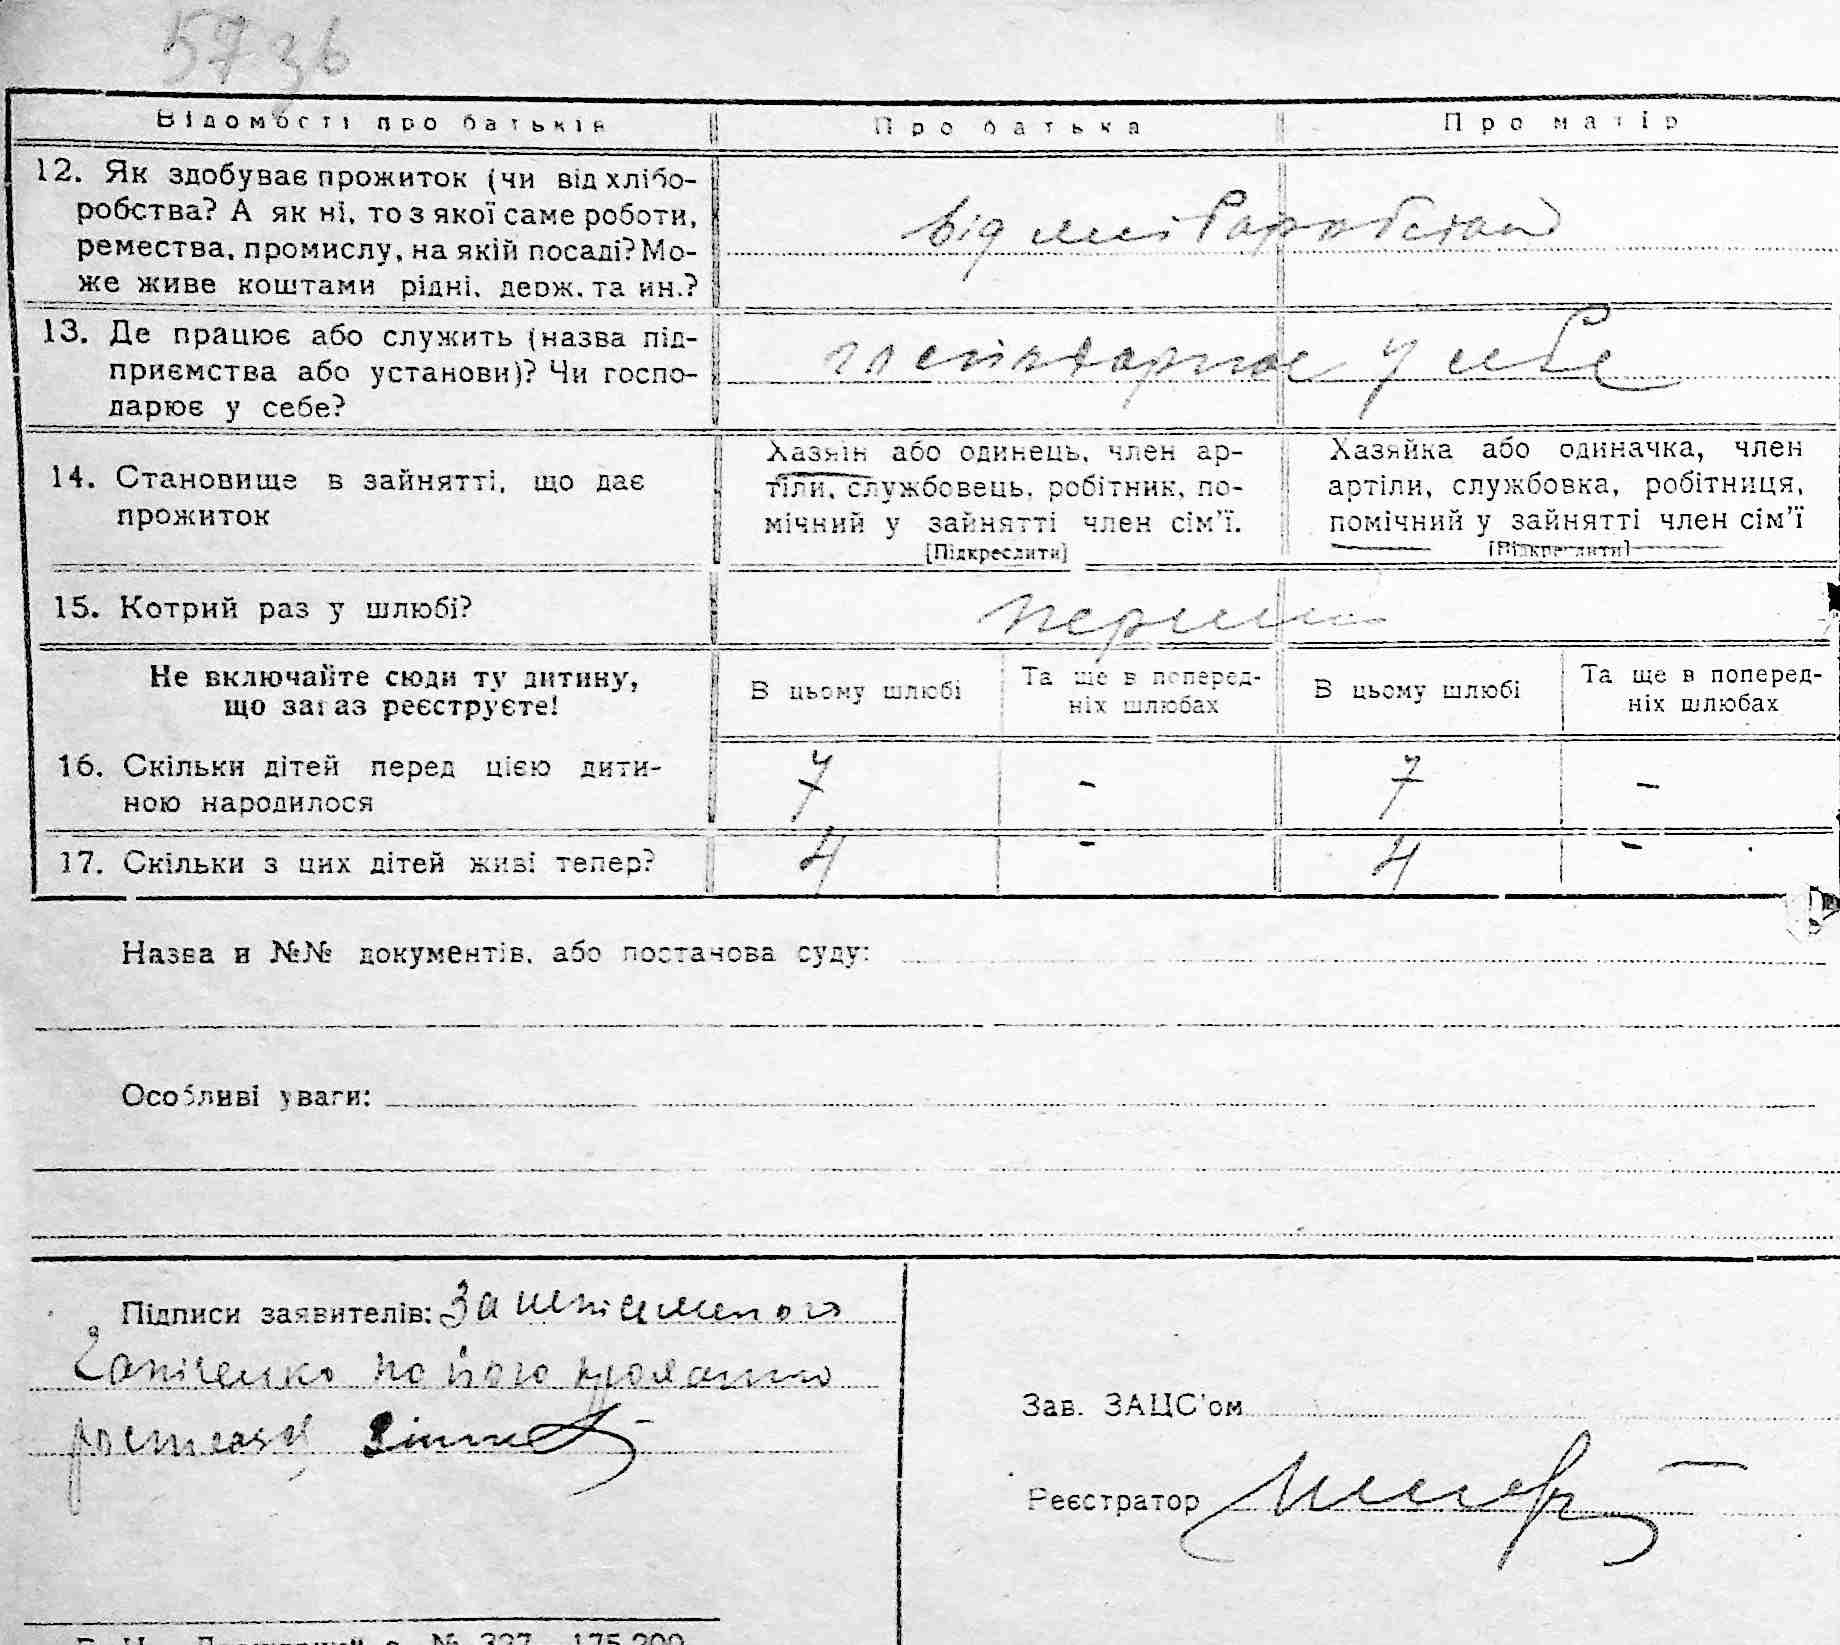 57 зв
Відомості про батьків
Про батька
Про матір
12. Як здобуває прожиток (чи від хлібо-
робства? А як ні, то з якої саме роботи,
ремества, промислу, на якій посаді? Мо-
же живе коштами рідні, держ. та ин.?
від хліборобства
13. Де працює або служить (назва під-
приємства або установи)? Чи госпо-
дарює у себе?
господарює у себе
14. Становище в зайнятті, що дає
прожиток
Хазяїн або одинець, член ар-
тіли, службовець, робітник, по-
мічний у зайнятті член сім'ї.
[Підкреслити]
Хазяйка або одиначка, член
артіли, службовка, робітниця,
помічний у зайнятті член сім'ї
[Підкреслити]
15. Котрий раз у шлюбі?
перший
Не включайте сюди ту дитину,
що зараз реєструєте!
В цьому шлюбі
Та ще в поперед-
ніх шлюбах
В цьому шлюбі
Та ще в поперед-
ніх шлюбах
16. Скільки дітей перед цією дити-
ною народилося
7 - 7 -
17. Скільки з цих дітей живі тепер?
4 - 4 -
Назва й №№ документів, або постанова суду:
Особливі уваги:
Підписи заявителів: За неписьменого
по його проханню
розписався
Зав. ЗАЦС'ом
Реєстратор
№ 327 175.200